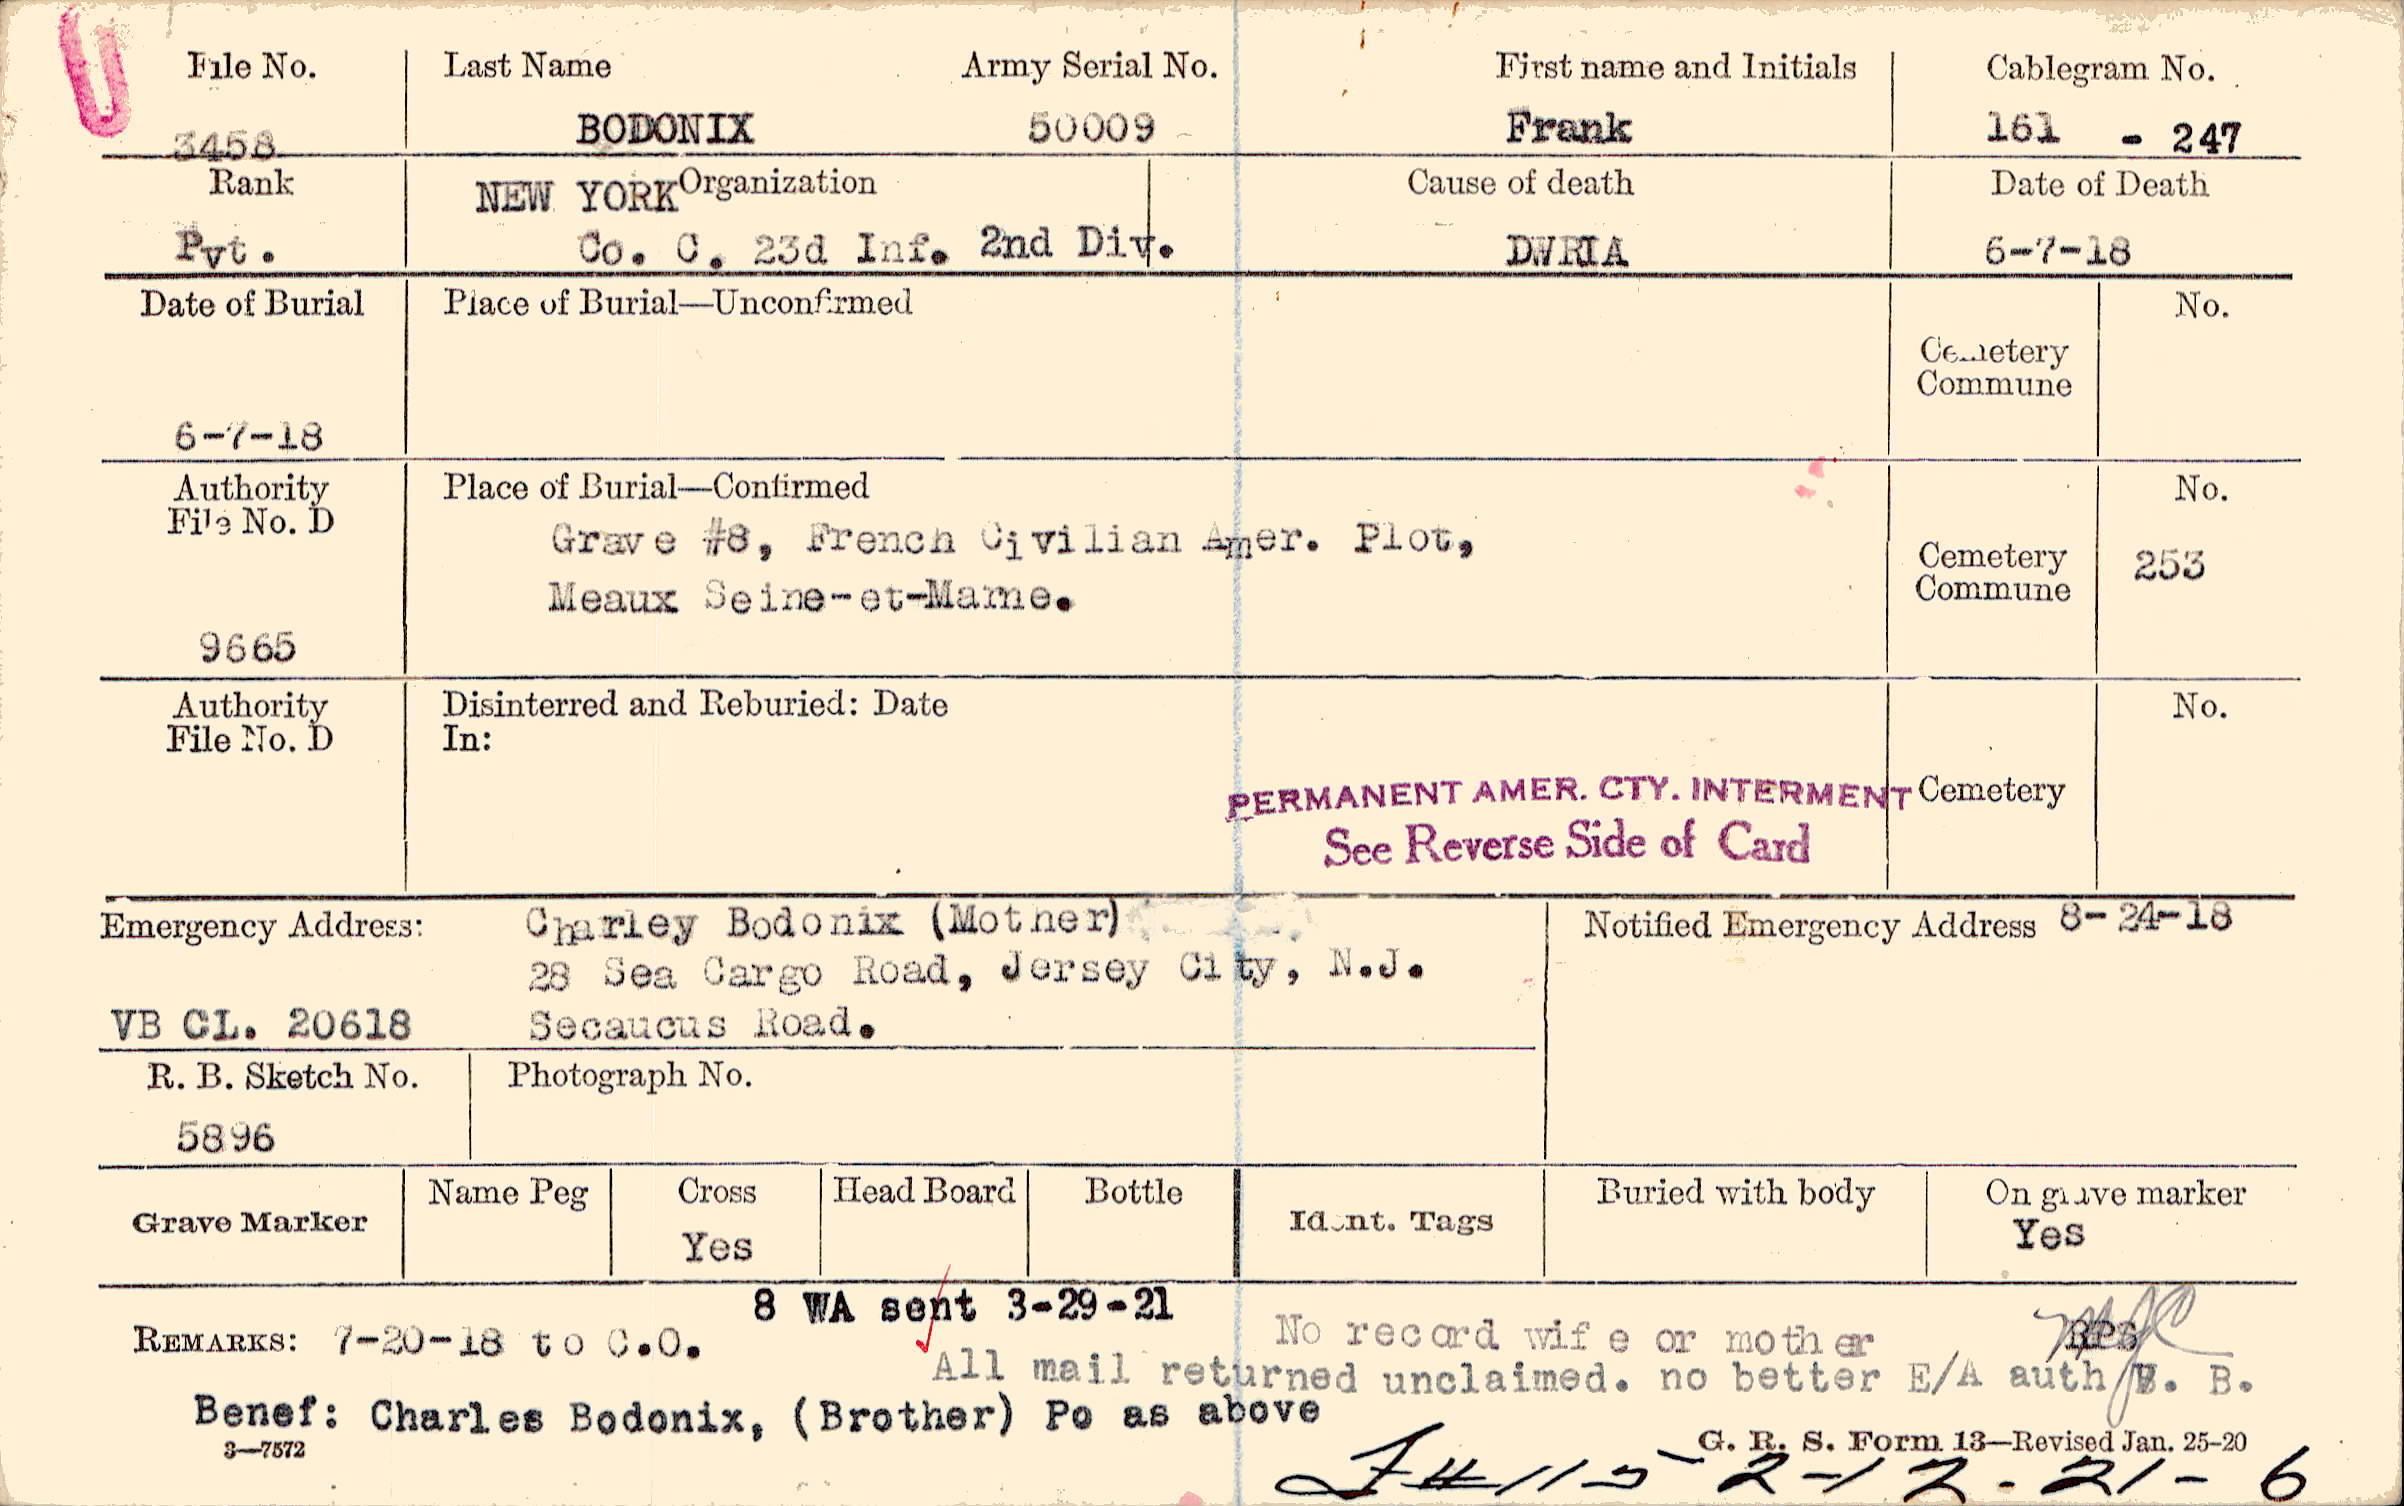 File No. Last Name Army Serial No. First name and Initials Cablegram No.
3458 BODONIX 50009 Frank 161 - 247
Rank NEW YORK Organization Cause of death Date of Death
Pvt. Co. C. 23d Inf. 2nd Div. DWRIA 6-7-18
Date of Burial Place of Burial—Unconfirmed No.
Cemetery
Commune
6-7-18
Authority Place of Burial—Confirmed No.
File No. D
Grave #8, French Civilian Amer. Plot,
Cemetery 253
Commune
Meaux Seine-et-Marne.
9665
Authority Disinterred and Reburied: Date No.
File No. D In:
PERMANENT AMER. CTY. INTERMENT Cemetery
See Reverse Side of Card
Emergency Address: Charley Bodonix (Mother) Notified Emergency Address 8-24-18
28 Sea Cargo Road, Jersey City, N.J.
VB CL. 20618 Secaucus Road.
R. B. Sketch No. Photograph No.
5896
Grave Marker Name Peg Cross Head Board Bottle Ident. Tags Buried with body On grave marker
Yes Yes
8 WA sent 3-29-21
REMARKS: 7-20-18 to C.O. No record wife or mother
All mail returned unclaimed. no better E/A auth V. B.
Benef: Charles Bodonix, (Brother) Po as above
3—7572 G. R. S. Form 13—Revised Jan. 25-20
2-12-21-6